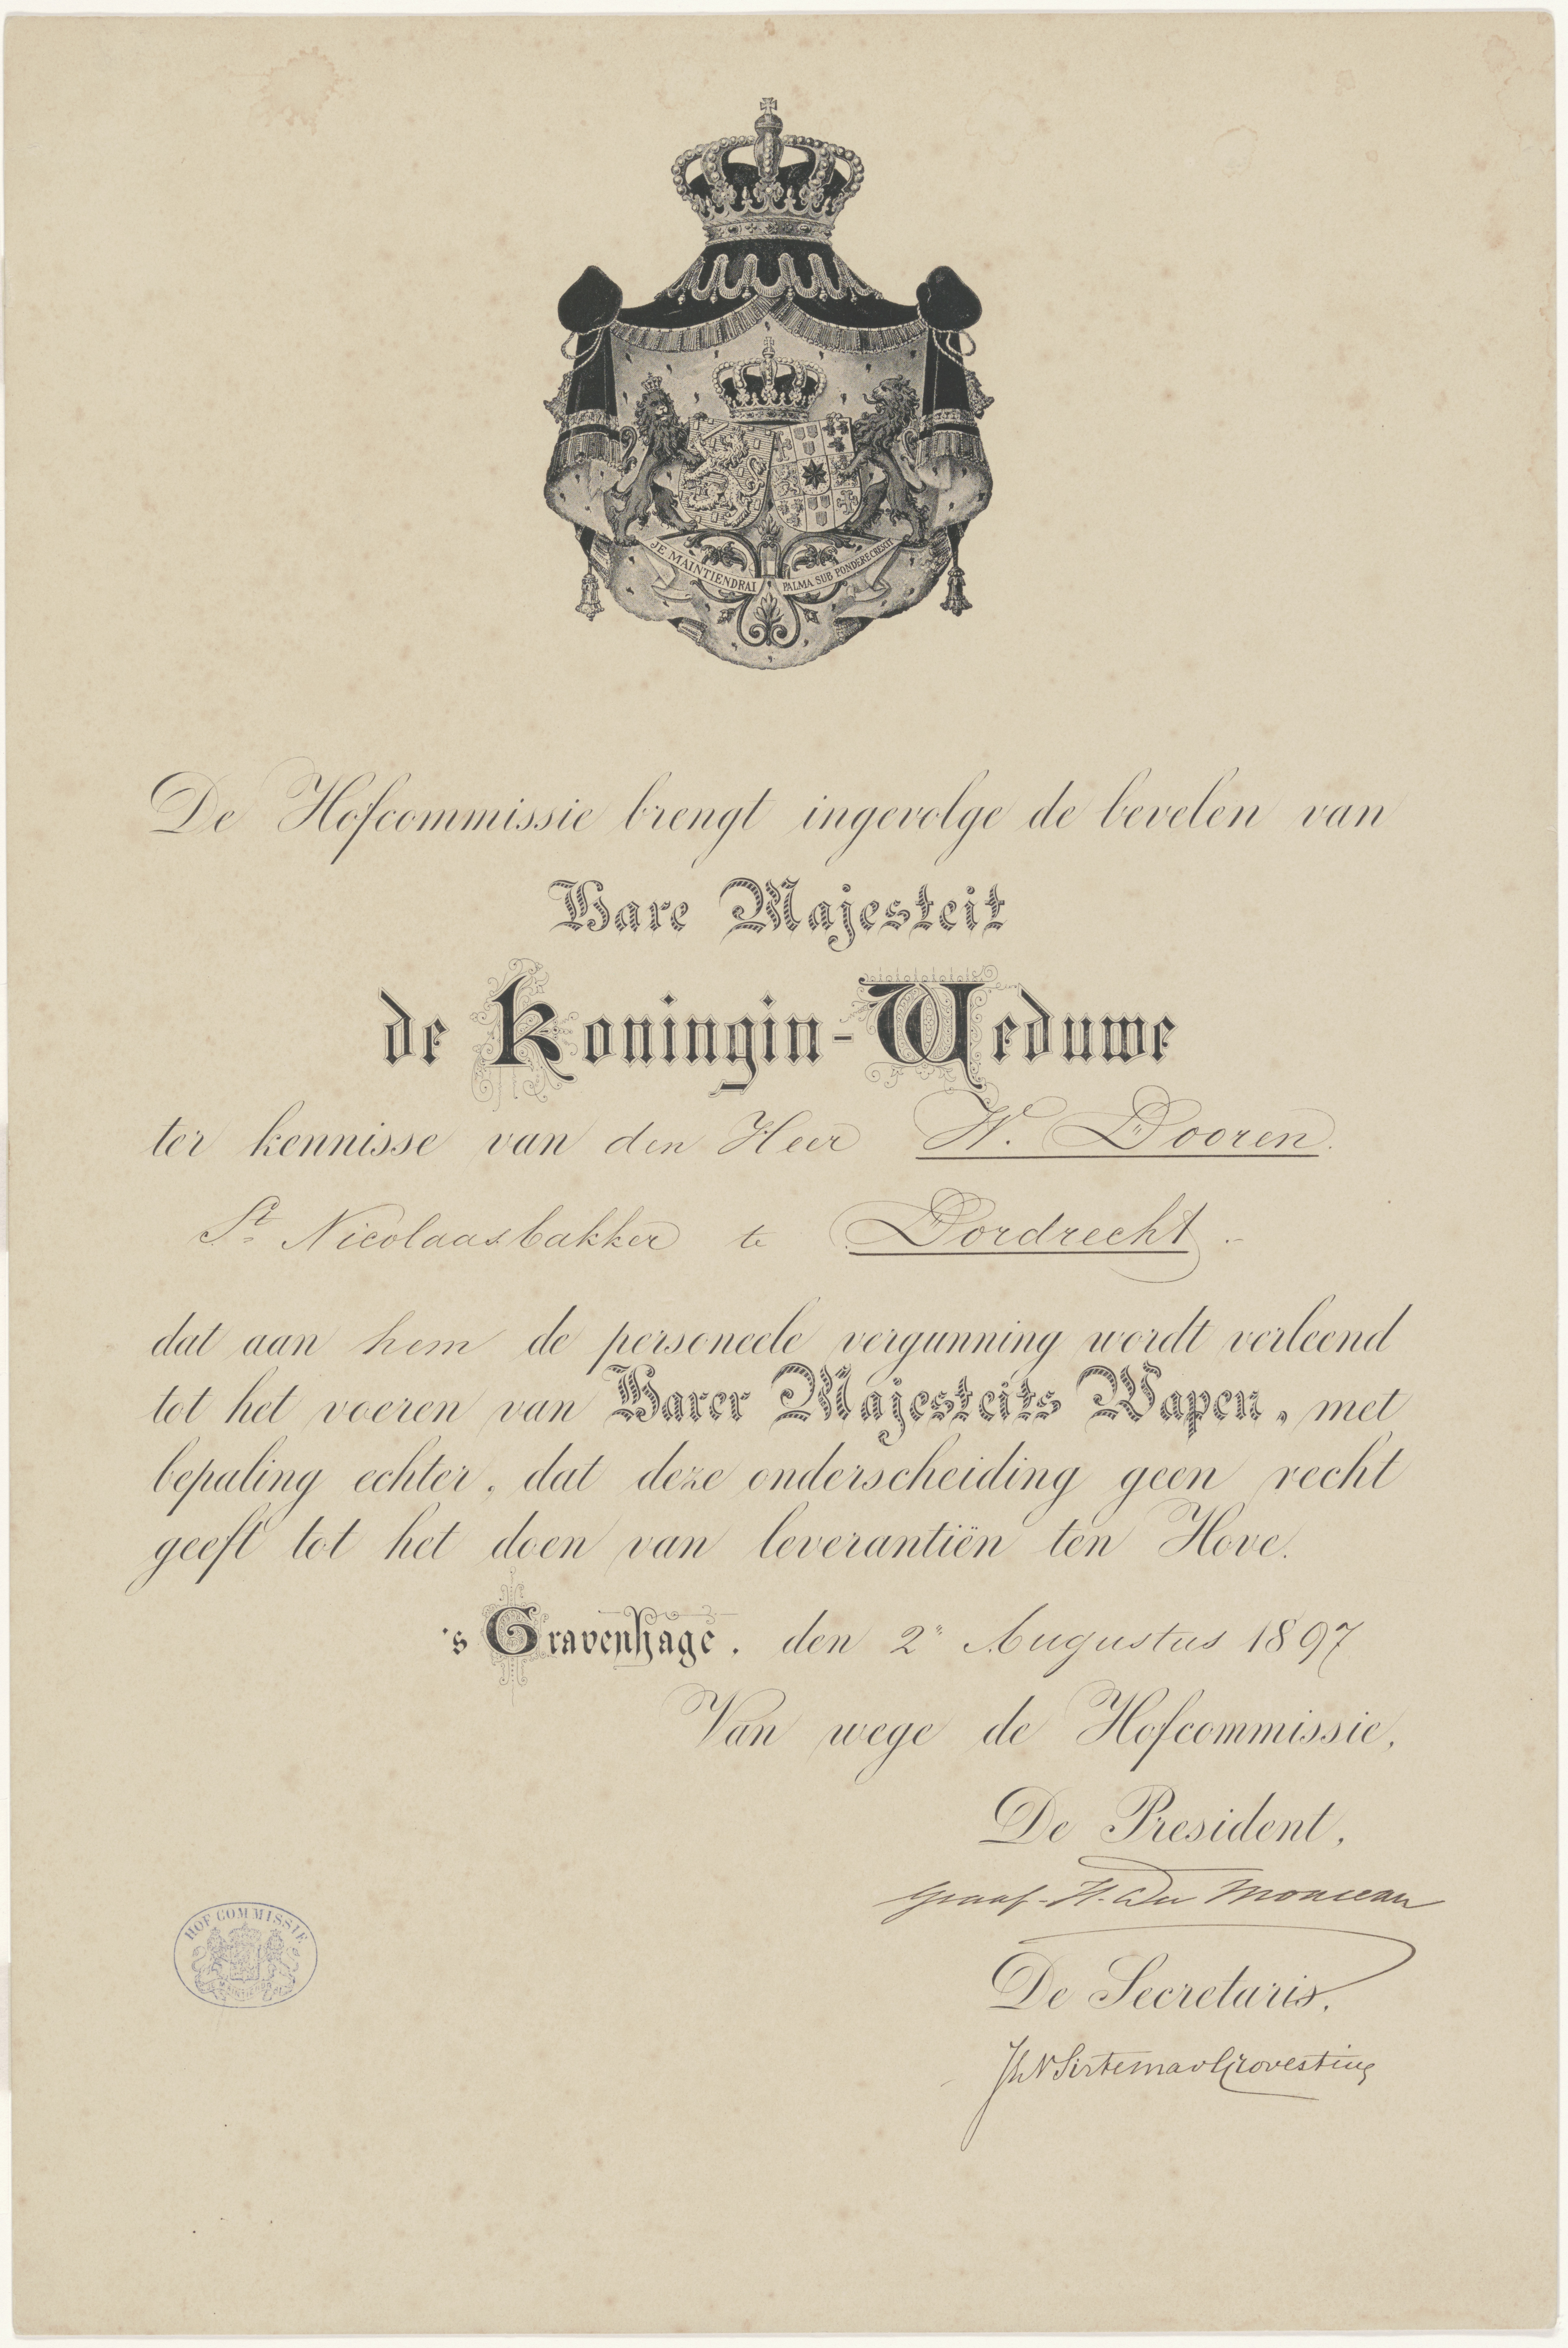 JE MAINTIENDRAI
PALMA SUB PONDERE CRESCIT
De Hofcommissie brengt ingevolge de bevelen van
Hare Majesteit
de Koningin-Weduwe
ter kennisse van den Heer W. Dooren.
St. Nicolaasbakker te Dordrecht.-
dat aan hem de personeele vergunning wordt verleend
tot het voeren van Harer Majesteits Wapen, met
bepaling echter, dat deze onderscheiding geen recht
geeft tot het doen van leverantiën ten Hove.
's Gravenhage, den 2e Augustus 1897
Van wege de Hofcommissie,
De President,
Graaf H. du Monceau
HOF COMMISSIE
De Secretaris,
Sirtema v Grovestins